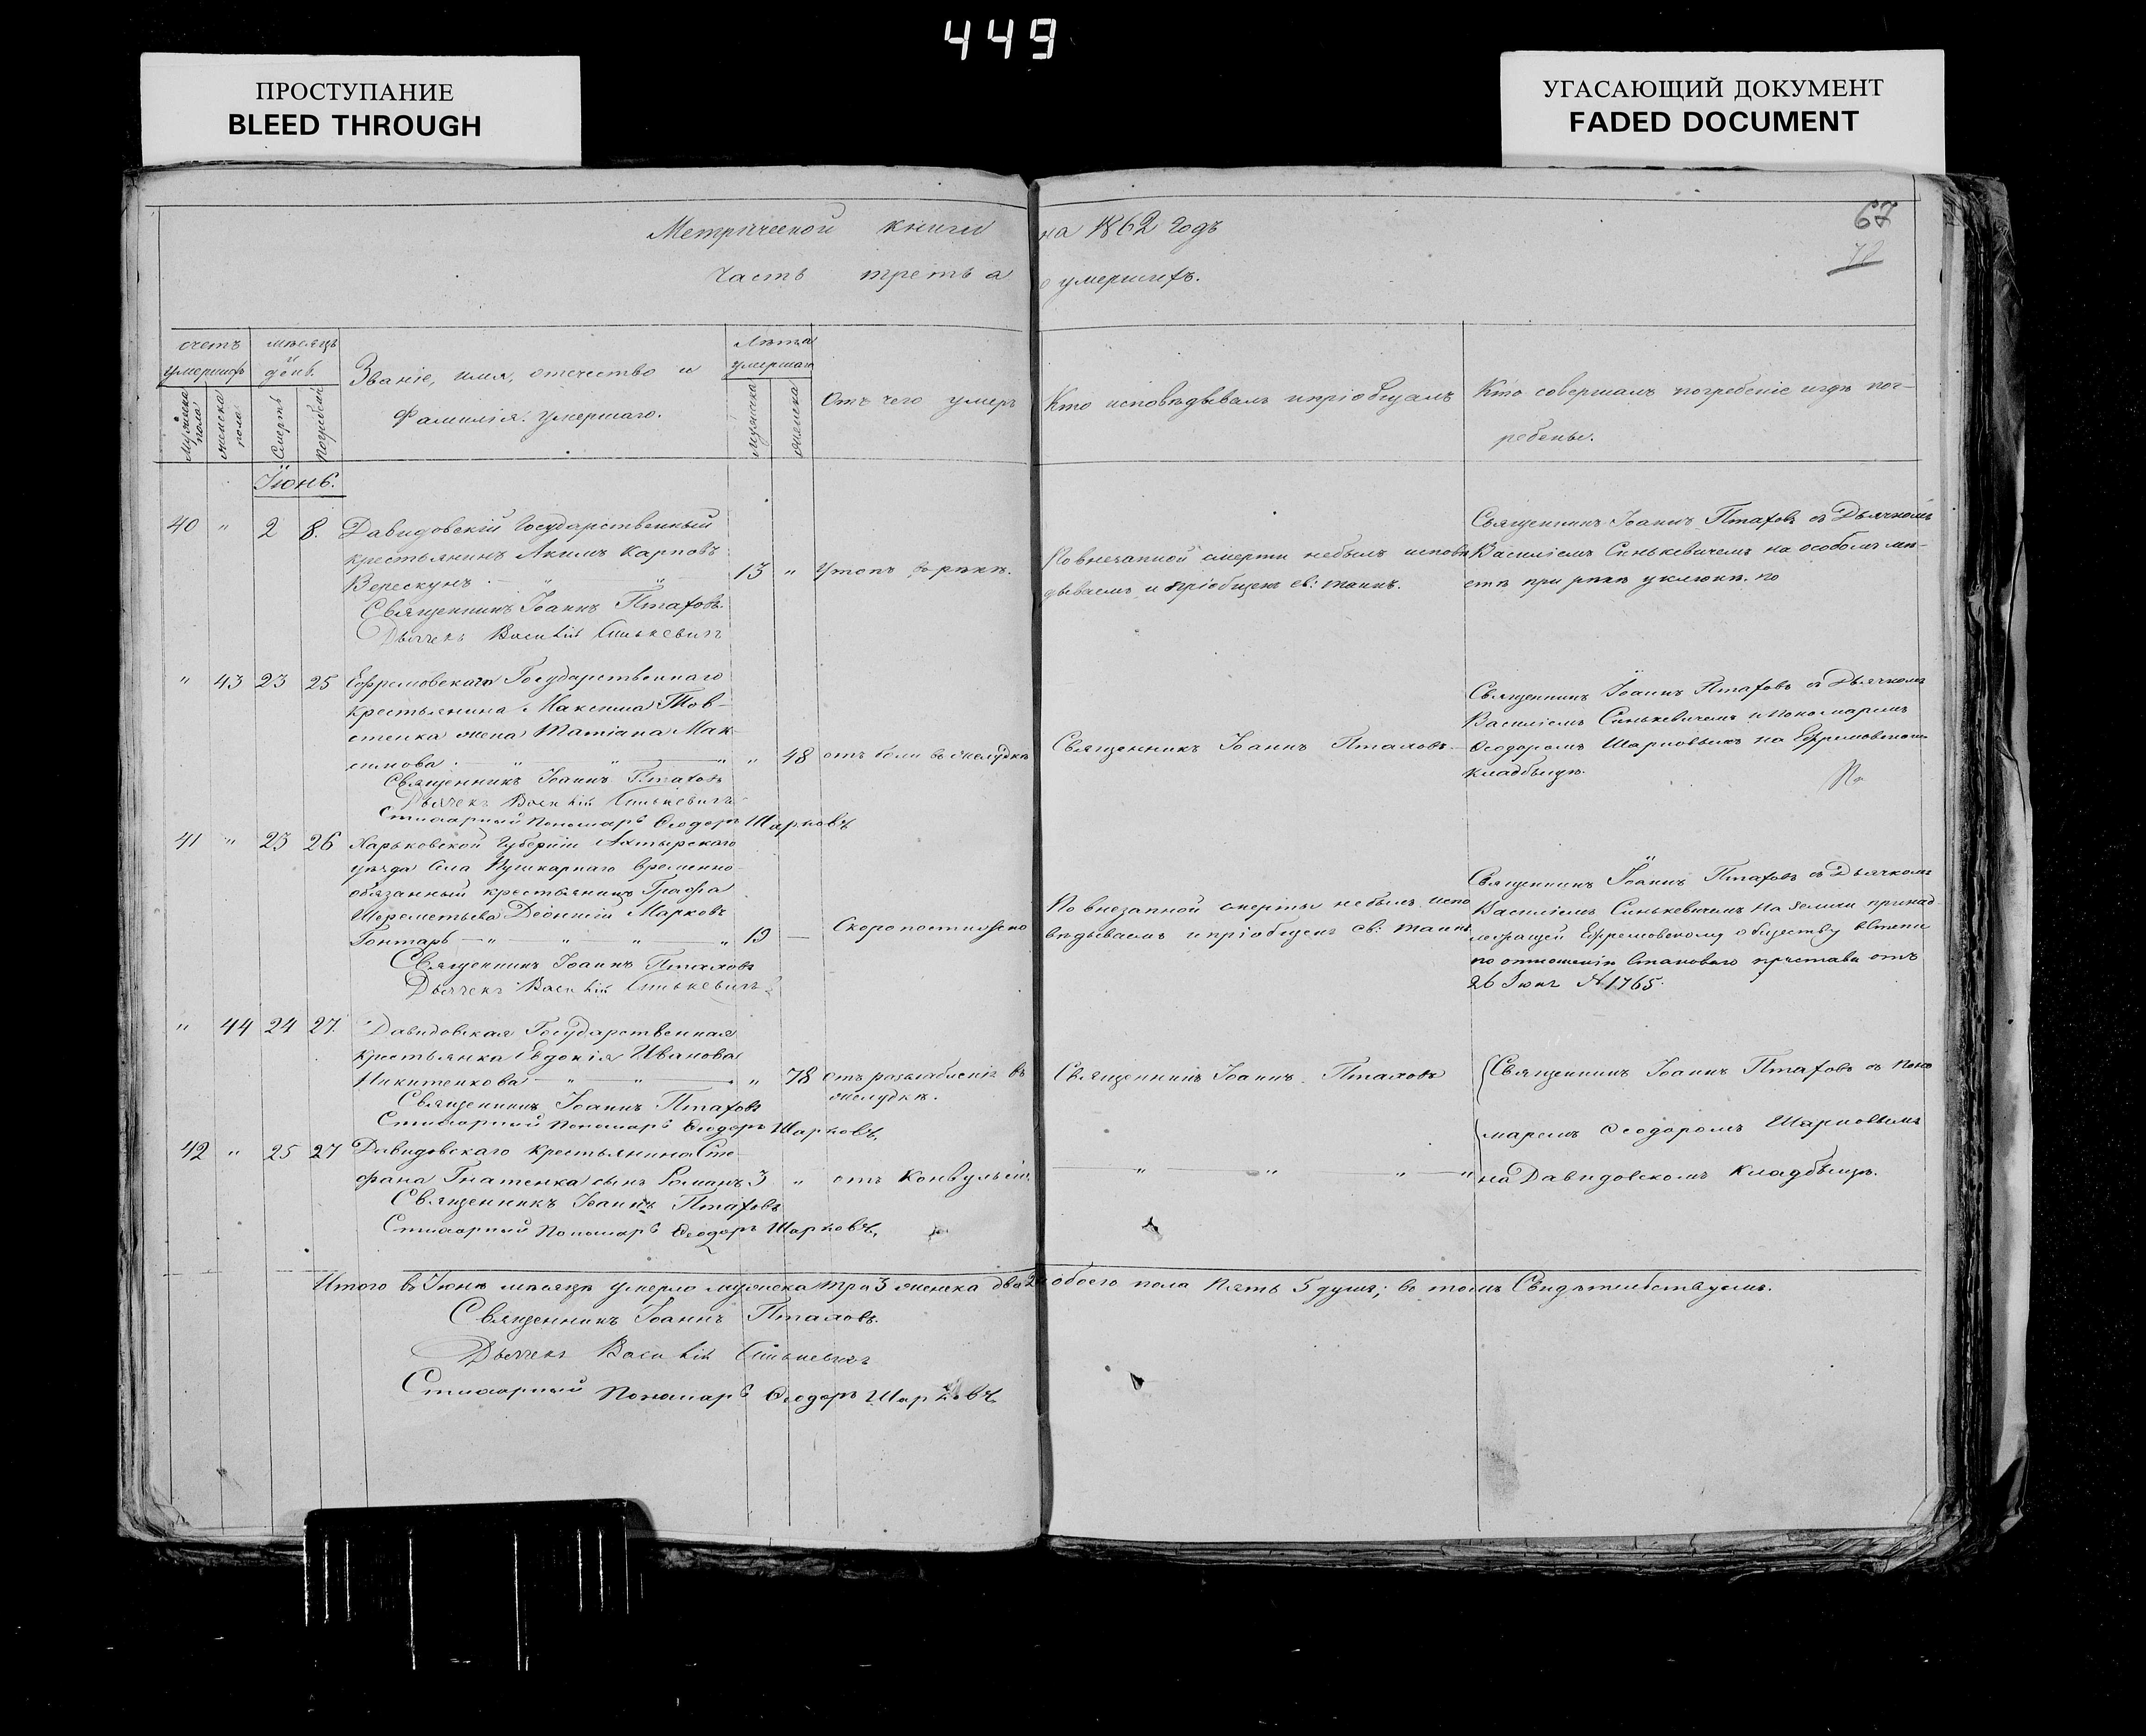 449
ПРОСТУПАНИЕ
BLEED THROUGH
УГАСАЮЩИЙ ДОКУМЕНТ
FADED DOCUMENT
67
Метрической книги на 1862 годъ
часть третья о умершихъ.
счетъ умершихъ
мѣсяцъ и день
Званіе, имя, отчество и
фамилія умершаго.
Лѣта умершаго
Отъ чего умеръ
Кто исповѣдывалъ и пріобщалъ
Кто совершалъ погребеніе и гдѣ пог-
ребены.
Мужеска пола
женска пола
Смерть
погребенія
мужеска
женска
Іюнь.
40 " 2 8. Давидовскій Государственный
крестьянинъ Акимъ Карповъ
Верескунъ " " 13 " Утопъ въ рѣкѣ.
Священникъ Іоаннъ Птаховъ
Дьячекъ Василій Синькевичъ
По внезапной смерти небылъ исповѣ
дываемъ и пріобщенъ св: таинъ.
Священникъ Іоаннъ Птаховъ съ Дьячкомъ
Василіемъ Синькевичемъ на особомъ мѣ-
стѣ при рѣкѣ
" 43 23 25 Ефремовскаго Государственнаго
крестьянина Максима Тов-
стенка жена Татіана Мак
симова " " " " 48 отъ боли въ желудкѣ
Священникъ Іоаннъ Птаховъ
Дьячекъ Василій Синькевичъ
Стихарный Пономарь Ѳеодоръ Шарковъ
Священникъ Іоаннъ Птаховъ
Священникъ Іоаннъ Птаховъ съ Дьячкомъ
Василіемъ Синькевичемъ и пономаремъ
Ѳеодоромъ Шарковымъ на Ефремовскомъ
кладбищѣ.
41 " 25 26 Харьковской Губерніи Ахтырскаго
уѣзда села Пушкарнаго временно
обязанный крестьянинъ Графа
Шереметьева Діонисій Марковъ
Гонтарь " " " " 19 — Скоропостижно
Священникъ Іоаннъ Птаховъ
Дьячекъ Василій Синькевичъ
По внезапной смерти небылъ испо
вѣдываемъ и пріобщенъ св: таинъ
Священникъ Іоаннъ Птаховъ съ Дьячкомъ
Василіемъ Синькевичемъ на земли принад
лежащей Ефремовскому обществу въ степи
по отношенію Становаго пристава отъ
26 Іюня № 1765.
" 44 24 27. Давидовская Государственная
крестьянка Евдокія Иванова
Никитенкова " " " 78 отъ разслабленія въ
желудкѣ.
Священникъ Іоаннъ Птаховъ
Стихарный пономарь Ѳеодоръ Шарковъ
Священникъ Іоаннъ Птаховъ
Священникъ Іоаннъ Птаховъ съ поно
маремъ Ѳеодоромъ Шарковымъ
на Давидовскомъ кладбищѣ.
42 " 25 27 Давидовскаго крестьянина Сте
фана Гнатенка сынъ Романъ 3 " отъ конвульсій
Священникъ Іоаннъ Птаховъ
Стихарный Пономарь Ѳеодоръ Шарковъ
" " " "
Итого въ Іюнѣ мѣсяцѣ умерло мужеска три 3 женска два 2 обоего пола пять 5 душъ; въ томъ Свидѣтельствуемъ.
Священникъ Іоаннъ Птаховъ.
Дьячекъ Василій Синькевичъ
Стихарный Пономарь Ѳеодоръ Шарковъ